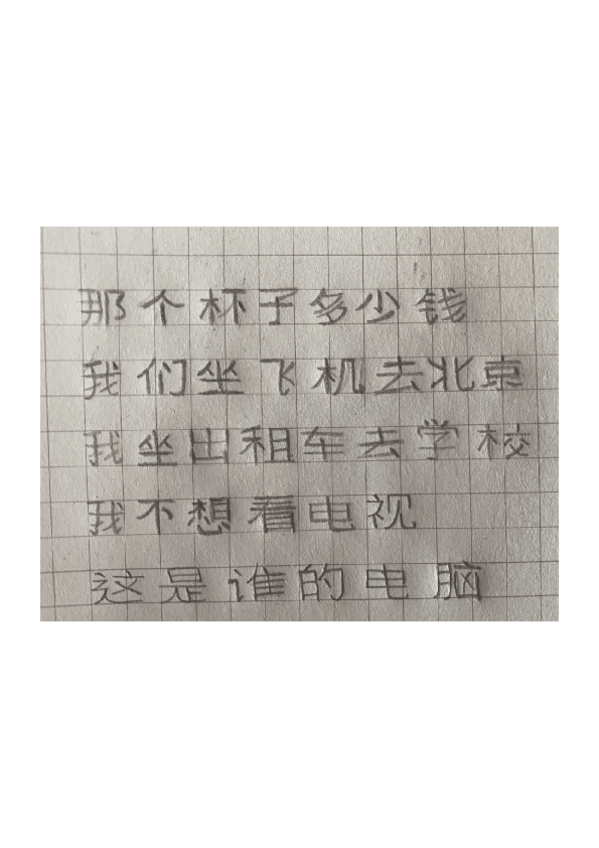 那个杯子多少钱
我们坐飞机去北京
我坐出租车去学校
我不想看电视
这是谁的电脑